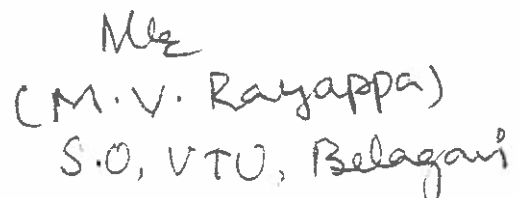 (M.V. Rayappa)
S.O, VTU, Belagavi